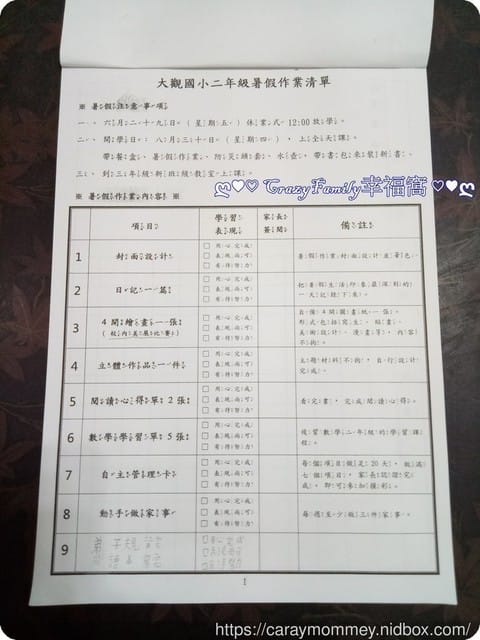 大觀國小二年級暑假作業清單
※ 暑假注意事項
一、六月二十九日(星期五)休業式 12:00放學。
二、開學日:八月三十日(星期四),上全天課。
帶餐盒、暑假作業、防災頭套、水壺、帶書包來裝新書。
三、到三年級新班級教室上課。
CrazyFamily幸福窩
※ 暑假作業內容 ※
項目 學習表現 家長簽閱 備註
1 封面設計 □用心完成 □表現尚可 □有待努力 暑假作業封面設計並著色。
2 日記一篇 □用心完成 □表現尚可 □有待努力 把暑假生活印象最深刻的一天記錄下來。
3 4開繪畫一張 (校內美展比賽) □用心完成 □表現尚可 □有待努力 自備4開圖畫紙一張。形式包括寫生、貼畫、美術設計、漫畫等,內容不拘。
4 立體作品一件 □用心完成 □表現尚可 □有待努力 主題材料不拘,自行設計完成。
5 閱讀心得單2張 □用心完成 □表現尚可 □有待努力 看完書,完成閱讀心得。
6 數學學習單5張 □用心完成 □表現尚可 □有待努力 複習數學二年級的學習課程。
7 自主管理卡 □用心完成 □表現尚可 □有待努力 每個項目做足20天,做滿七個項目,家長認證完成,即可參加摸彩。
8 動手做家事 □用心完成 □表現尚可 □有待努力 每週至少做三件家事。
9 弟子規 □用心完成
1
https://caraymommey.nidbox.com/